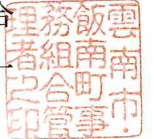 雲南市・
飯南町事
務組合管
理者之印